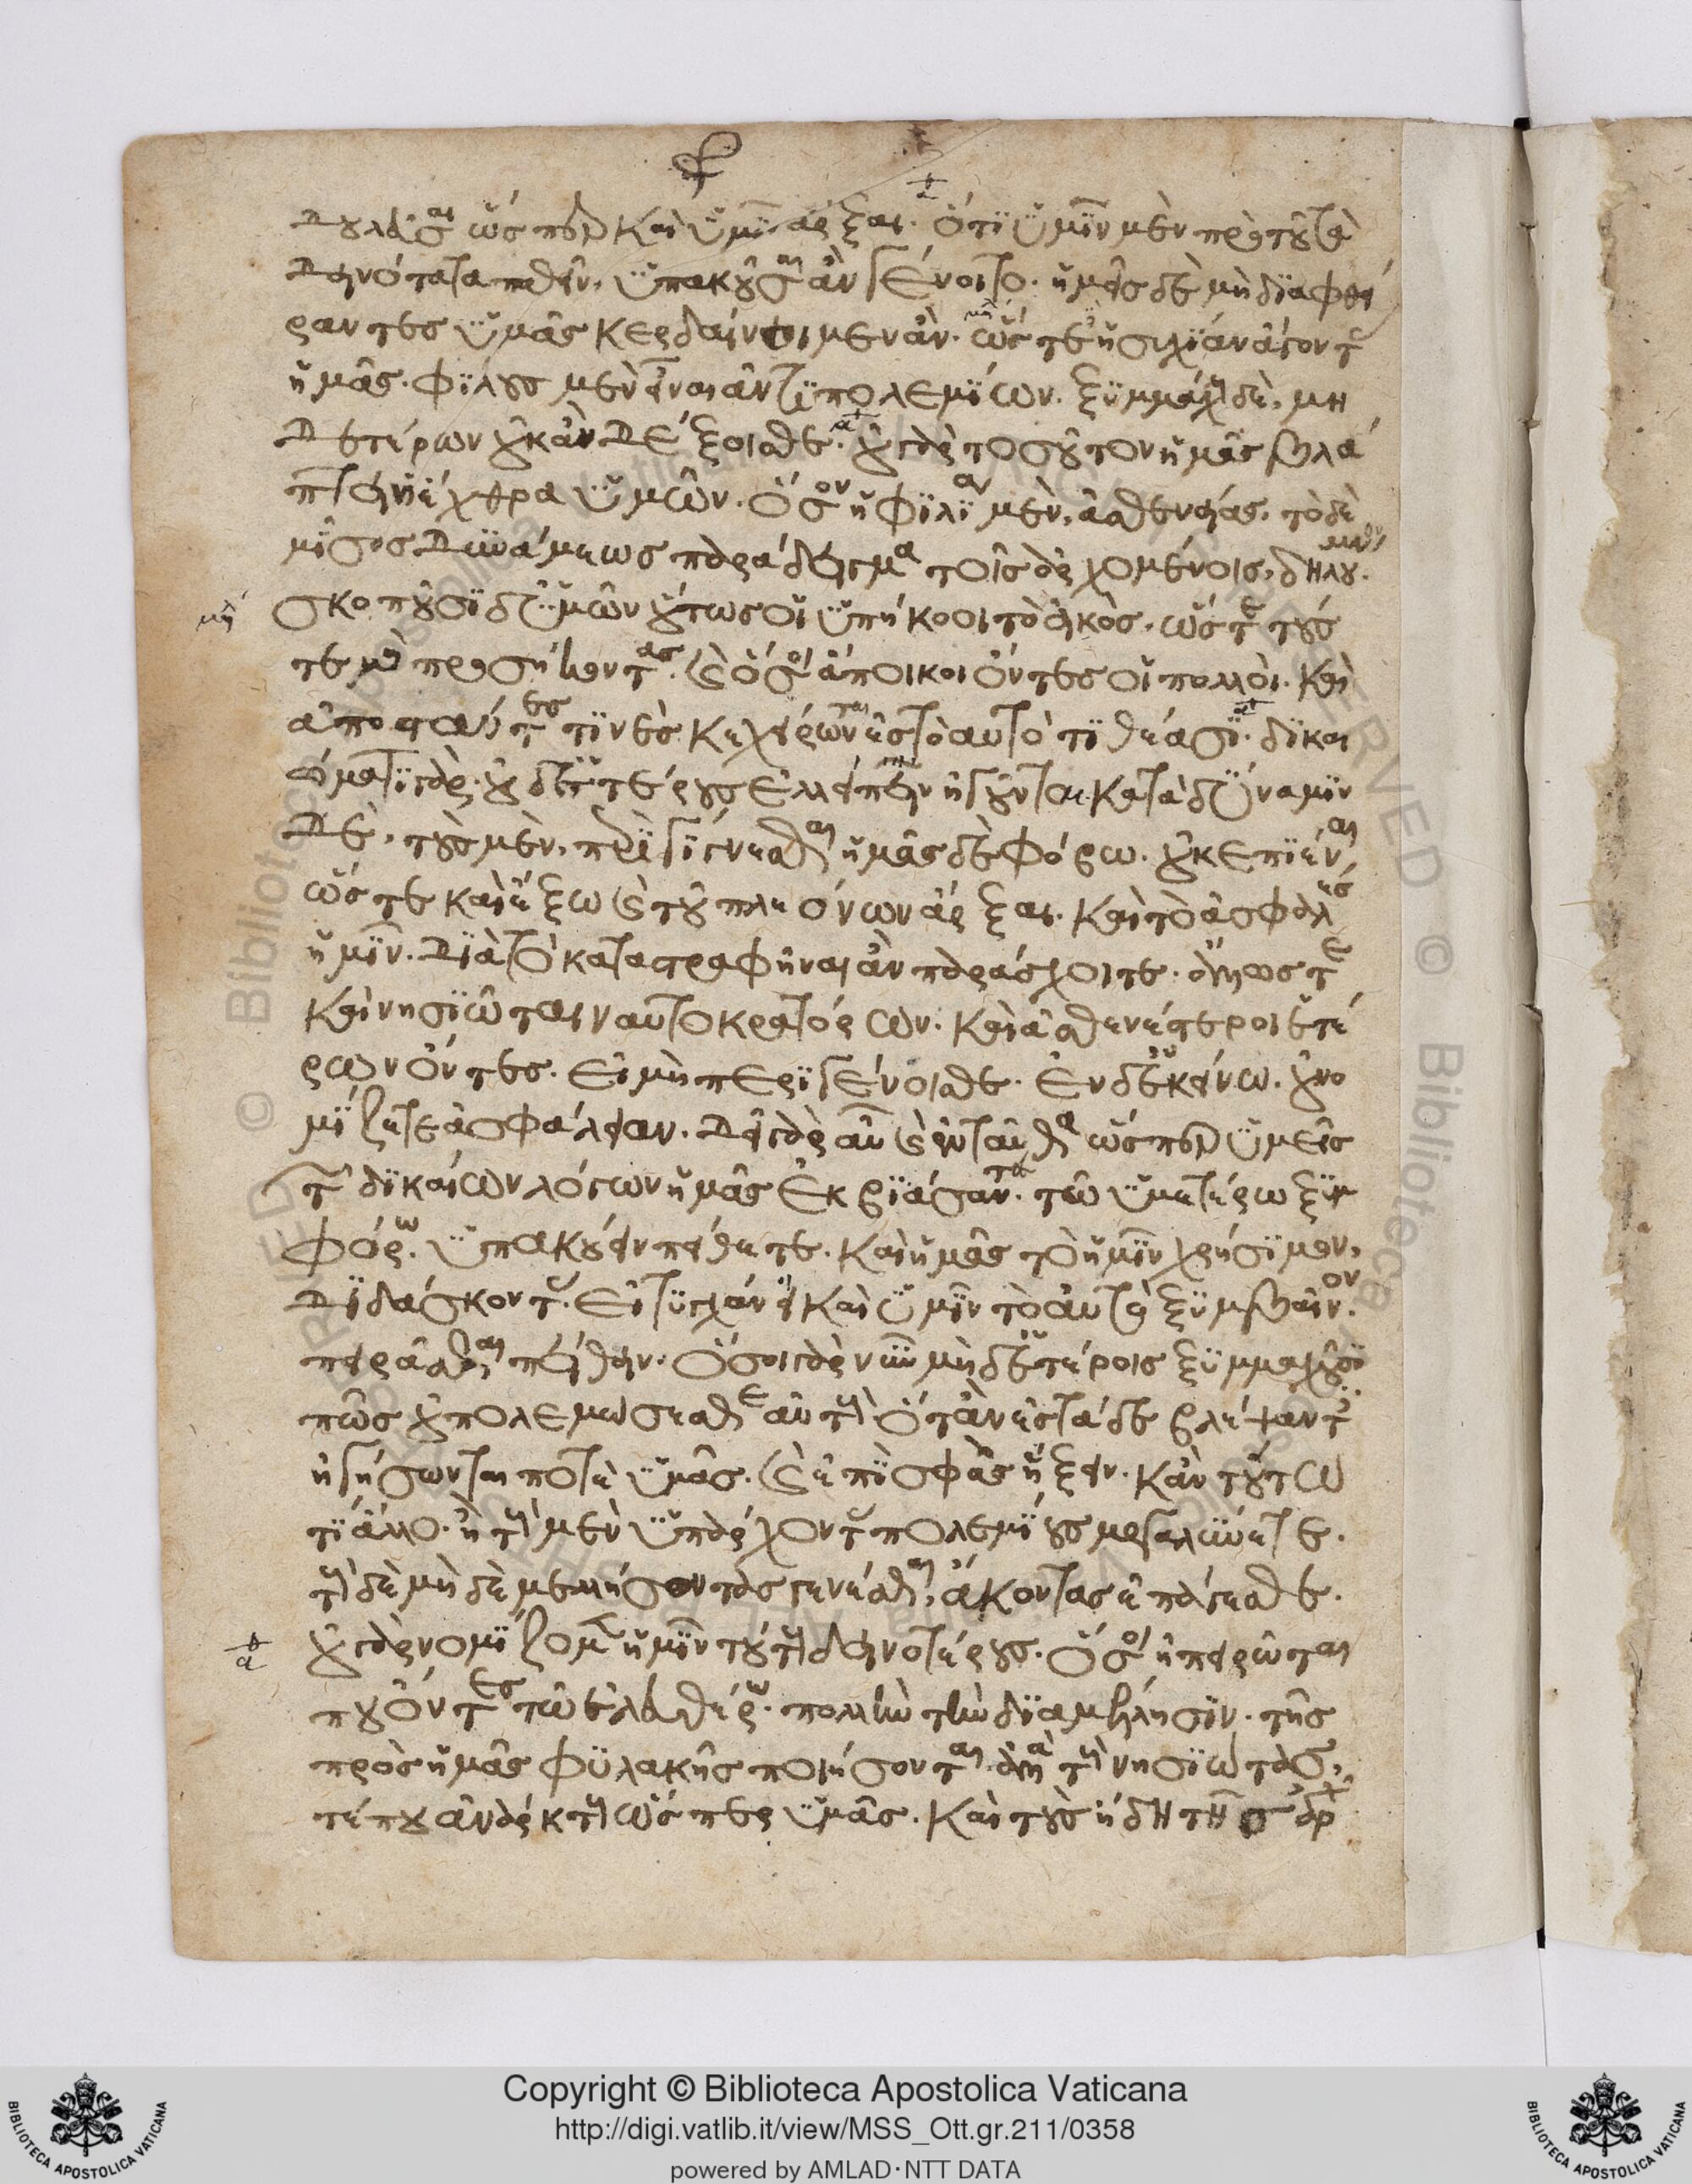 δουλεῦσαι ὥσπερ καὶ ὑμῖν ἄρξαι. ὅτι ὑμῖν μὲν πρὸ τοῦ τὰ
δεινότατα παθεῖν, ὑπακοῦσαι ἂν γένοιτο. ἡμεῖς δὲ μὴ διαφθεί
ραντες ὑμᾶς κερδαίνοιμεν ἄν. ὥστε ἡσυχίαν ἄγοντας
ἡμᾶς. φίλους μὲν εἶναι ἀντὶ πολεμίων. ξυμμάχους δὲ, μη
δετέρων οὐκ ἂν δέξοισθε. οὐ γὰρ τοσοῦτον ἡμᾶς βλά
πτει ἡ ἔχθρα ὑμῶν. ὅσον ἡ φιλία μὲν, ἀσθενείας, τὸ δὲ
μῖσος δυνάμεως παράδειγμα τοῖς ἀρχομένοις, δηλού
μενον
μὴ
σκοποῦσι δ' ὑμῶν οὕτως οἱ ὑπήκοοι τὸ εἰκὸς, ὥστε τούς
τε μὴ προσήκοντας. καὶ ὅσοι ἄποικοι ὄντες οἱ πολλοὶ. καὶ
ἀποστάντες τινὲς κεχείρωνται ἐς τὸ αὐτὸ τιθέασι. δικαι
ώματι γὰρ. οὐδετέρους ἐλλείπειν ἡγοῦνται κατὰ δύναμιν
δὲ, τοὺς μὲν, περιγίγνεσθαι ἡμᾶς δὲ φόβω. οὐκ ἐπιέναι,
ὥστε καὶ ἔξω καὶ τοῦ πλεόνων ἄρξαι. καὶ τὸ ἀσφαλὲς
ἡμῖν. διὰ τὸ καταστραφῆναι ἂν παράσχοιτε. ἄλλως τε
καὶ νησιῶται ναυτοκρατόρων. καὶ ἀσθενέστεροι ἑτέ
ρων ὄντες. εἰ μὴ περιγένοισθε. ἐν δ' ἐκείνω. οὐ νο
μίζετε ἀσφάλειαν. δεῖ γὰρ αὖ καὶ ἐνταῦθα ὥσπερ ὑμεῖς
τῶν δικαίων λόγων ἡμᾶς ἐκβιάσαντες. τῶ ὑμετέρω ξυμ
φόρω. ὑπακούειν πείθετε. καὶ ἡμᾶς τὸ ἡμῖν χρήσιμον,
διδάσκοντας. εἰ τυγχάνει καὶ ὑμῖν τὸ αὐτὸ ξυμβαῖνον.
πειρᾶσθαι πείθειν. ὅσοι γὰρ νῦν μηδετέροις ξυμμαχοῦσι
πῶς οὐ πολεμώσεσθε αὐτοὺς ὅταν ἐς τάδε βλέψαντες
ἡγήσωνται ποτὲ ὑμᾶς. καὶ ἐπὶ σφᾶς ἥξειν. κἀν τούτω
τί ἄλλο. ἢ τοὺς μὲν ὑπάρχοντας πολεμίους μεγαλύνετε.
τοὺς δὲ μηδὲ μελλήσοντας γενέσθαι, ἄκοντας ἐπάγεσθε.
οὐ γὰρ νομίζομεν ἡμῖν τούτους δεινοτέρους. ὅσοι ἠπειρῶται
που ὄντες τῶ ἐλευθέρω. πολλὴν τὴν διαμέλλησιν. τῆς
πρὸς ἡμᾶς φυλακῆς ποιήσονται. ἀλλὰ τοὺς νησιώτας,
τέ που ἀνάρκτους ὥσπερ ὑμᾶς. καὶ τοὺς ἤδη τῆς ἀρ
Copyright © Biblioteca Apostolica Vaticana
http://digi.vatlib.it/view/MSS_Ott.gr.211/0358
powered by AMLAD·NTT DATA
BIBLIOTECA APOSTOLICA VATICANA
BIBLIOTECA APOSTOLICA VATICANA